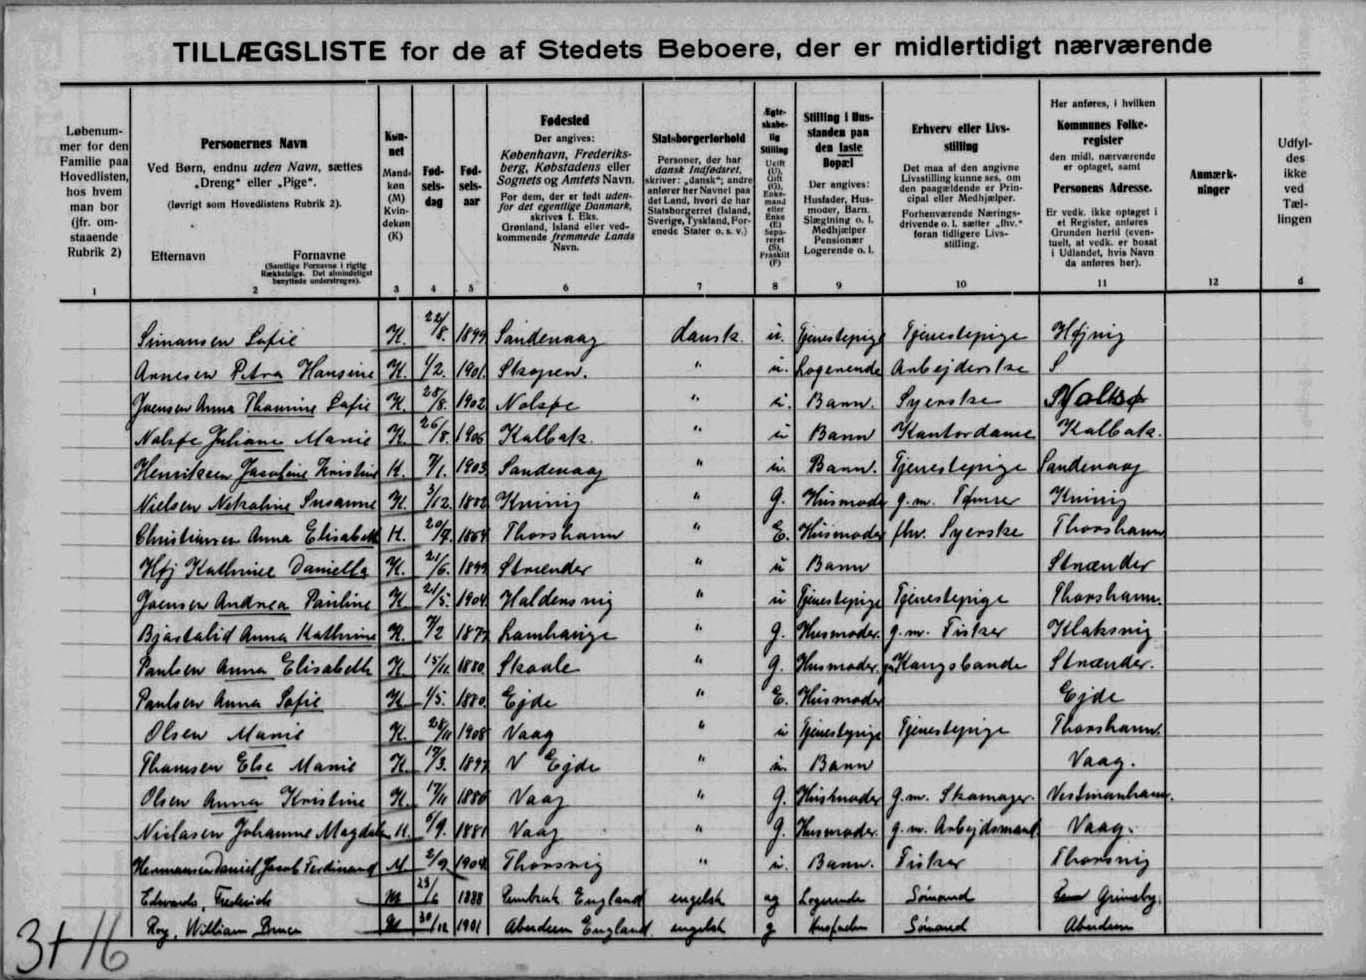 TILLÆGSLISTE for de af Stedets Beboere, der er midlertidigt nærværende
Løbenum-
mer for den
Familie paa
Hovedlisten,
hos hvem
man bor
(jfr. om-
staaende
Rubrik 2)
1
Personernes Navn
Ved Børn, endnu uden Navn, sættes
„Dreng" eller „Pige".
(iøvrigt som Hovedlistens Rubrik 2).
Efternavn
Fornavne
(Samtlige Fornavne i rigtig
Rækkefølge. Det almindeligst
benyttede understreges).
2
Køn-
net
Mand-
køn
(M)
Kvin-
dekøn
(K)
3
Fød-
sels-
dag
4
Fød-
sels-
aar
5
Fødested
Der angives:
København, Frederiks-
berg, Købstadens eller
Sognets og Amtets Navn.
For dem, der er født uden-
for det egentlige Danmark,
skrives f. Eks.
Grønland, Island eller ved-
kommende fremmede Lands
Navn.
6
Statsborgerforhold
Personer, der har
dansk Indfødsret,
skriver: „dansk"; andre
anfører her Navnet paa
det Land, hvori de har
Statsborgerret (Island,
Sverige, Tyskland, For-
enede Stater o. s. v.)
7
Ægte-
skabe-
lig
Stilling
Ugift
(U),
Gift
(G),
Enke-
mand
eller
Enke
(E)
Sepa-
reret
(S),
Fraskilt
(F)
8
Stilling i Hus-
standen paa
den faste
Bopæl
Der angives:
Husfader, Hus-
moder, Barn,
Slægtning o. l.
Medhjælper
Pensionær
Logerende o. l.
9
Erhverv eller Livs-
stilling
Det maa af den angivne
Livsstilling kunne ses, om
den paagældende er Prin-
cipal eller Medhjælper.
Forhenværende Nærings-
drivende o. l. sætter „fhv."
foran tidligere Livs-
stilling.
10
Her anføres, i hvilken
Kommunes Folke-
register
den midl. nærværende
er optaget, samt
Personens Adresse.
Er vedk. ikke optaget i
et Register, anføres
Grunden hertil (even-
tuelt, at vedk. er bosat
i Udlandet, hvis Navn
da anføres her).
11
Anmærk-
ninger
12
Udfyl-
des
ikke
ved
Tæl-
lingen
d
Simonsen Sofie K. 22/8. 1899 Sandevaag dansk. u. Tjenestepige Tjenestepige
Annesen Petra Hansine K. 1/2. 1901. Skopen. " u. Logerende Arbejderske S
Joensen Anna Thomine Sofie K. 28/8. 1902 Nolsøe " u. Barn. Syerske Nolsø
Nolsøe Juliane Marie K 26/8. 1906 Kalbak. " u Barn Kontordame Kalbak.
Henriksen Jacobine Kristine K. 7/1. 1903 Sandevaag " u. Barn. Tjenestepige Sandevaag
Nielsen Nikoline Susanne K. 3/12. 1882 Kvivig " g. Husmoder g. m. Tømrer Kvivig
Christiansen Anna Elisabeth K. 20/7. 1864 Thorshavn " E. Husmoder fhv. Syerske Thorshavn
Høj Kathrine Daniella K. 21/6. 1899 Strænder " u Barn Strænder
Joensen Andrea Pauline K 21/5. 1904 Haldersvig " u Tjenestepige Tjenestepige Thorshavn.
Bjastalid Anna Kathrine K. 7/2 1877 Lamhauge " g. Husmoder. g. m. Fisker Klaksvig
Poulsen Anna Elisabeth K 15/11. 1880. Skaale " g. Husmoder. Kongsbonde Strænder.
Poulsen Anna Sofie K 1/5. 1880 Ejde " E. Husmoder Ejde
Olsen Marie K. 28/11 1908 Vaag " u Tjenestepige Tjenestepige Thorshavn.
Thomsen Else Marie K. 19/3. 1897 V Ejde " u. Barn Vaag.
Olsen Anna Kristine K. 17/11 1886 Vaag " g. Husmoder g. m. Skomager. Vestmanhavn.
Niclasen Johanne K. 5/9. 1881 Vaag " g. Husmoder. g. m. Arbejdsmand Vaag.
Hermansen Daniel Jacob Ferdinand M 2/9 1904 Thorsvig " u. Barn. Fisker Thorsvig
Edwards, Frederick M 23/6 1888 England engelsk ug Logerende Sömand Grimsby.
Roy, William Bruce M 30/12 1901 Aberdeen England engelsk g Husfader Sömand Aberdeen
3+16